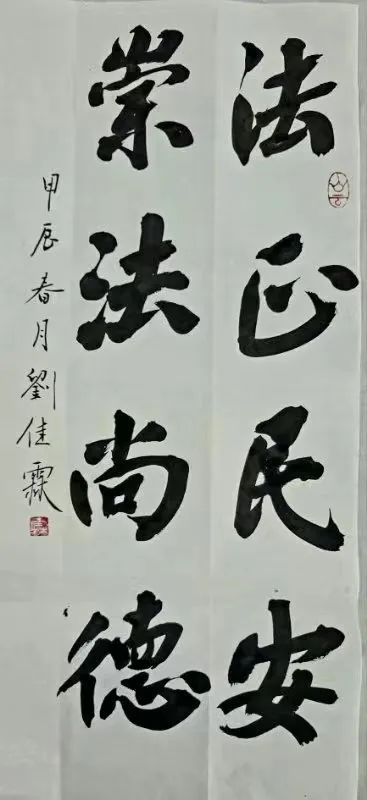 法正民安
崇法尚德
甲辰春月劉佳霖